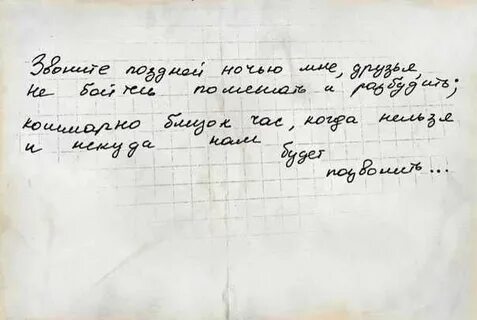 Звоните поздней ночью мне, друзья,
не бойтесь помешать и разбудить;
кошмарно близок час, когда нельзя
и некуда нам
будет
позвонить...